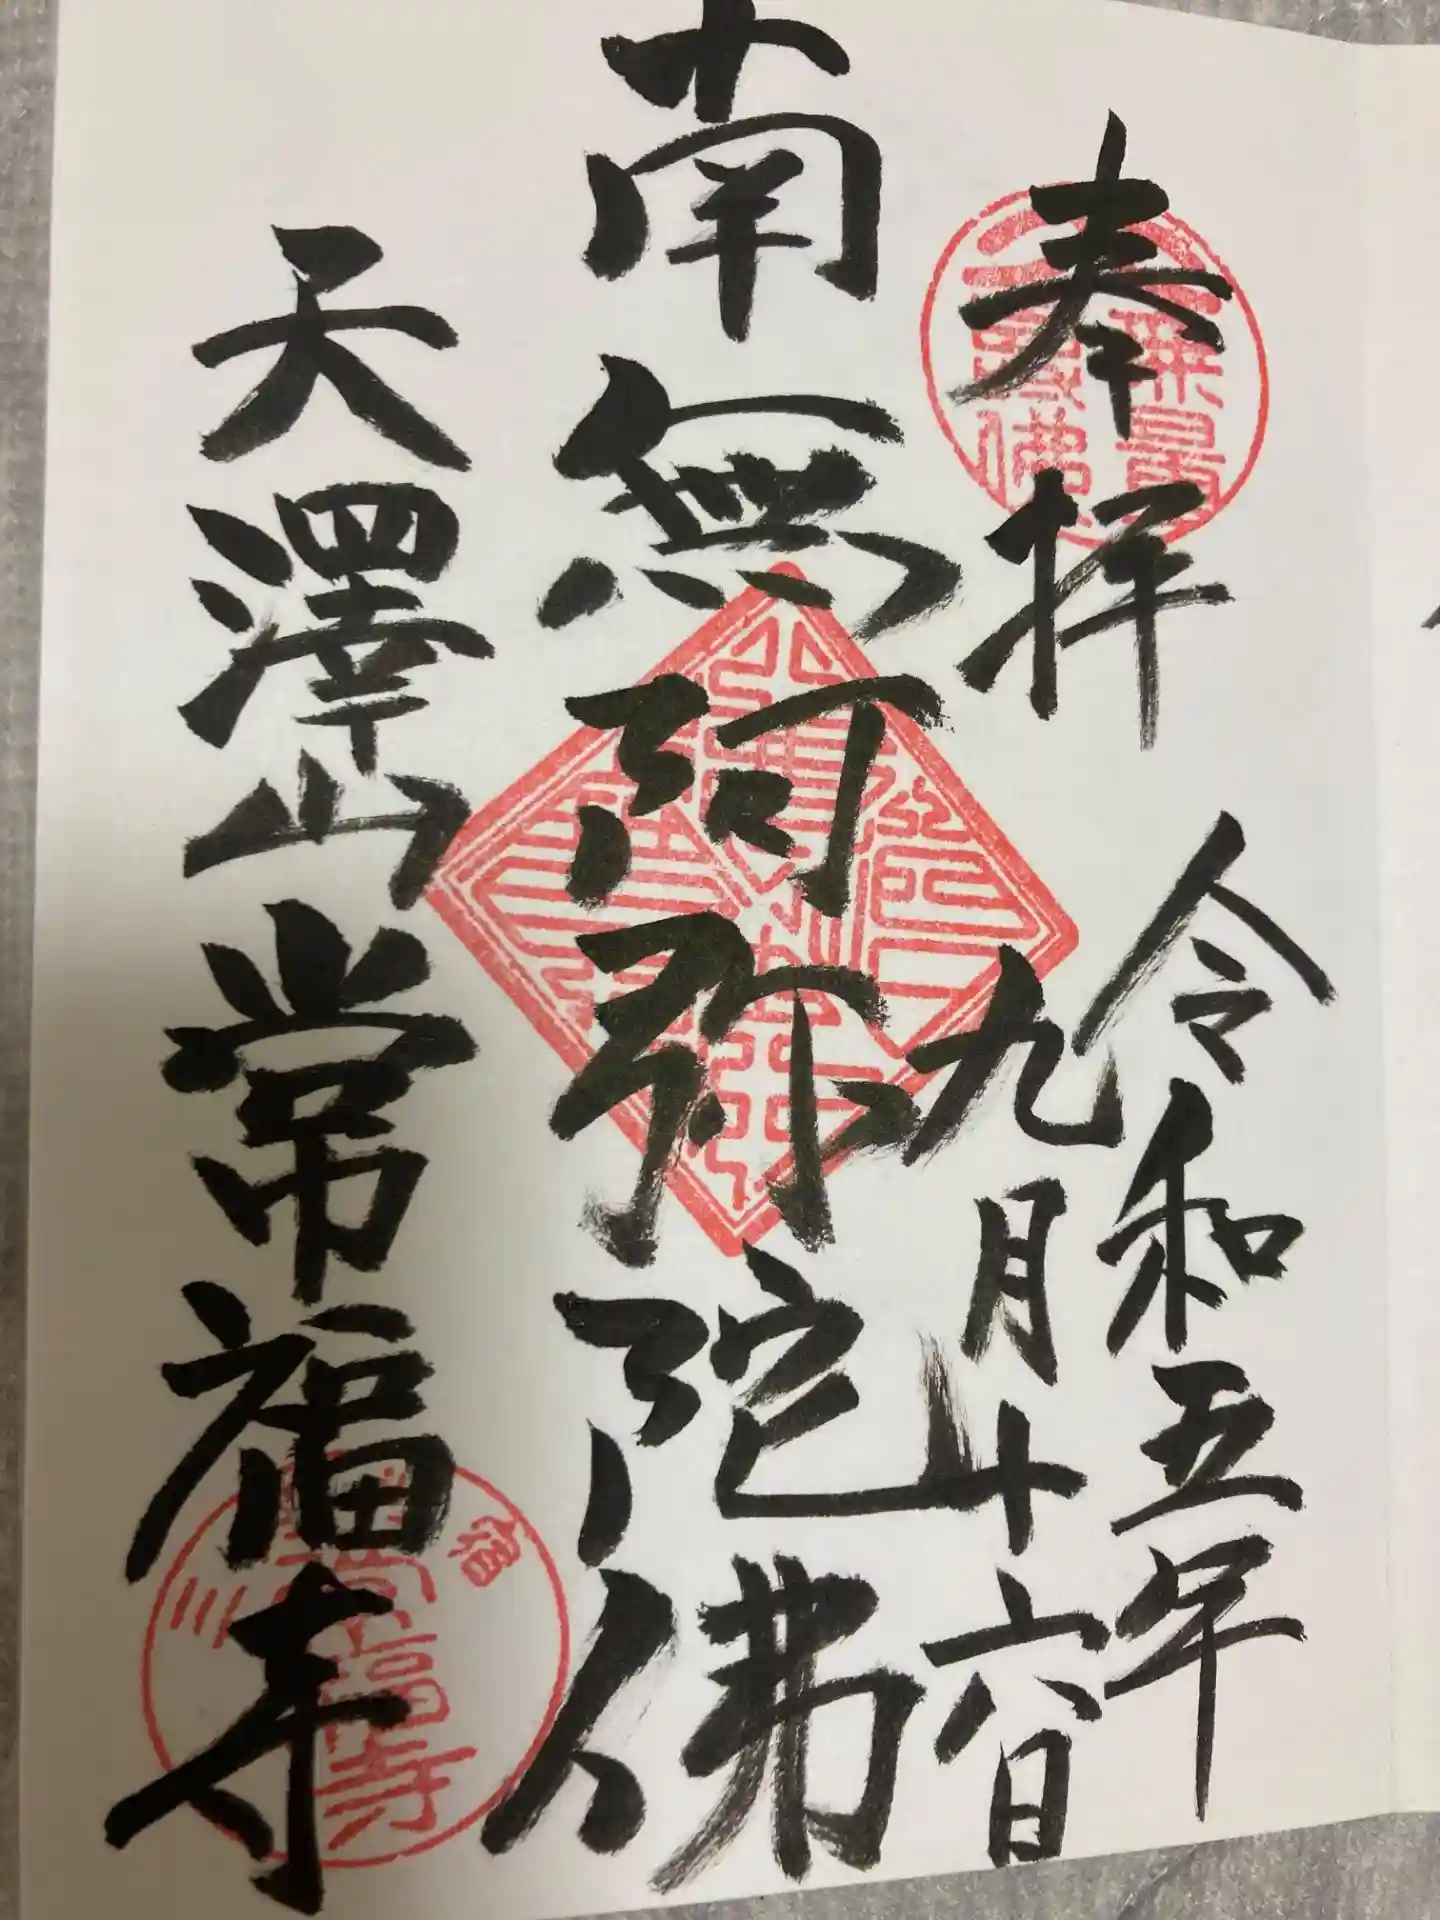 奉拝
令和五年
九月十六日
南無阿弥陀佛
天澤山常福寺
常福寺